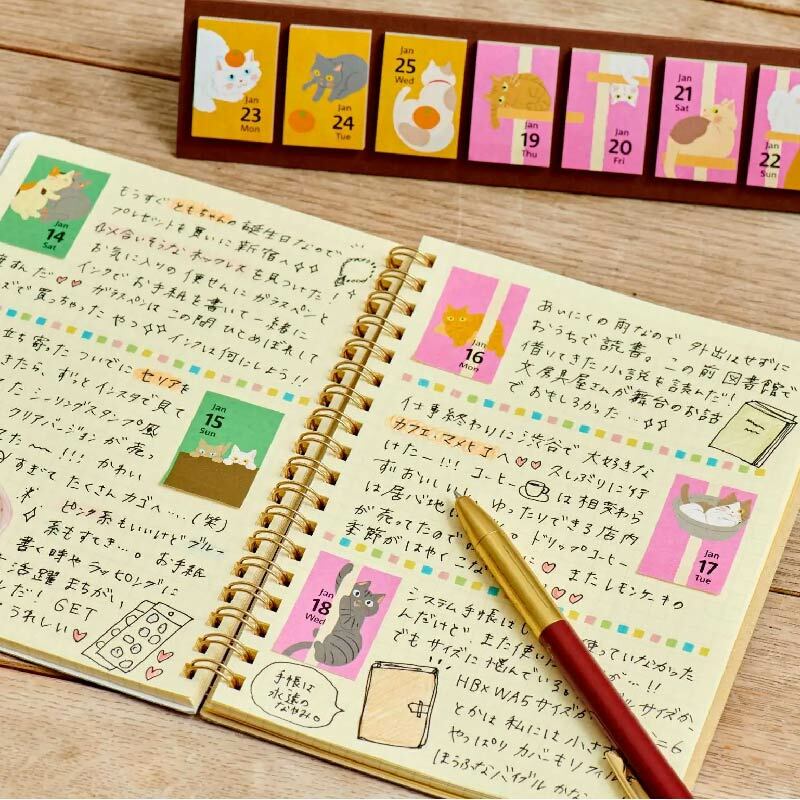 Jan
23
Mon
Jan
24
Tue
Jan
25
Wed
Jan
19
Thu
Jan
20
Fri
Jan
21
Sat
Jan
22
Sun
Jan
14
Sat
もうすぐ ともちゃんの 誕生日なので
プレゼントを買いに新宿へ
似合いそうなネックレスを見つけた!
お気に入りの便せんにガラスペンと
インクでお手紙を書いて一緒に
ガラスペンは この間 ひとめぼれして
ズで買っちゃった やつ インクは何にしよう!!
立ち寄った ついでに セリアを
きたら、ずっとインスタで見て
た シーリングスタンプ風
クリアバージョンが 売っ
てた〜〜!!! かわい
すぎて たくさん カゴへ……(笑)
ピンク系もいいけど ブルー
系もすてき…。お手紙
書く時や ラッピングに
活躍 まちがい
だ! GET
うれしい
Jan
15
Sun
Jan
16
Mon
あいにくの雨なので 外出はせずに
おうちで読書。この前 図書館で
借りてきた小説を読んだ!
文房具屋さんが舞台のお話
で おもしろかった…
仕事終わりに渋谷で 大好きな
カフェ、マメヒコへ 久しぶりに行
けた−!!! コーヒー は相変わら
ずおいしい ゆったりできる店内
は居心地 ドリップコーヒー
が売ってたので また レモンケーキの
季節がはやくこな
Jan
17
Tue
Jan
18
Wed
システム手帳は 使っていなかった
んだけど、また使いた が…!!
でも サイズに悩んでいる ルサイズか
HB×WA5サイズか =6
とかは 私には 小さす
やっぱり カバーも リフィル
ほうふなバイブル かな
手帳は
永遠の
なやみ。